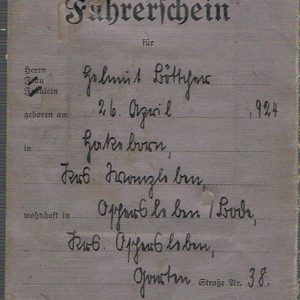 Führerschein
für
Herrn
Frau
Fräulein
Helmut Böttcher
geboren am 26. April 1924
in Hakeborn,
Krs. Wanzleben,
wohnhaft in Oschersleben/Bode,
Krs. Oschersleben,
Garten Straße Nr. 38.